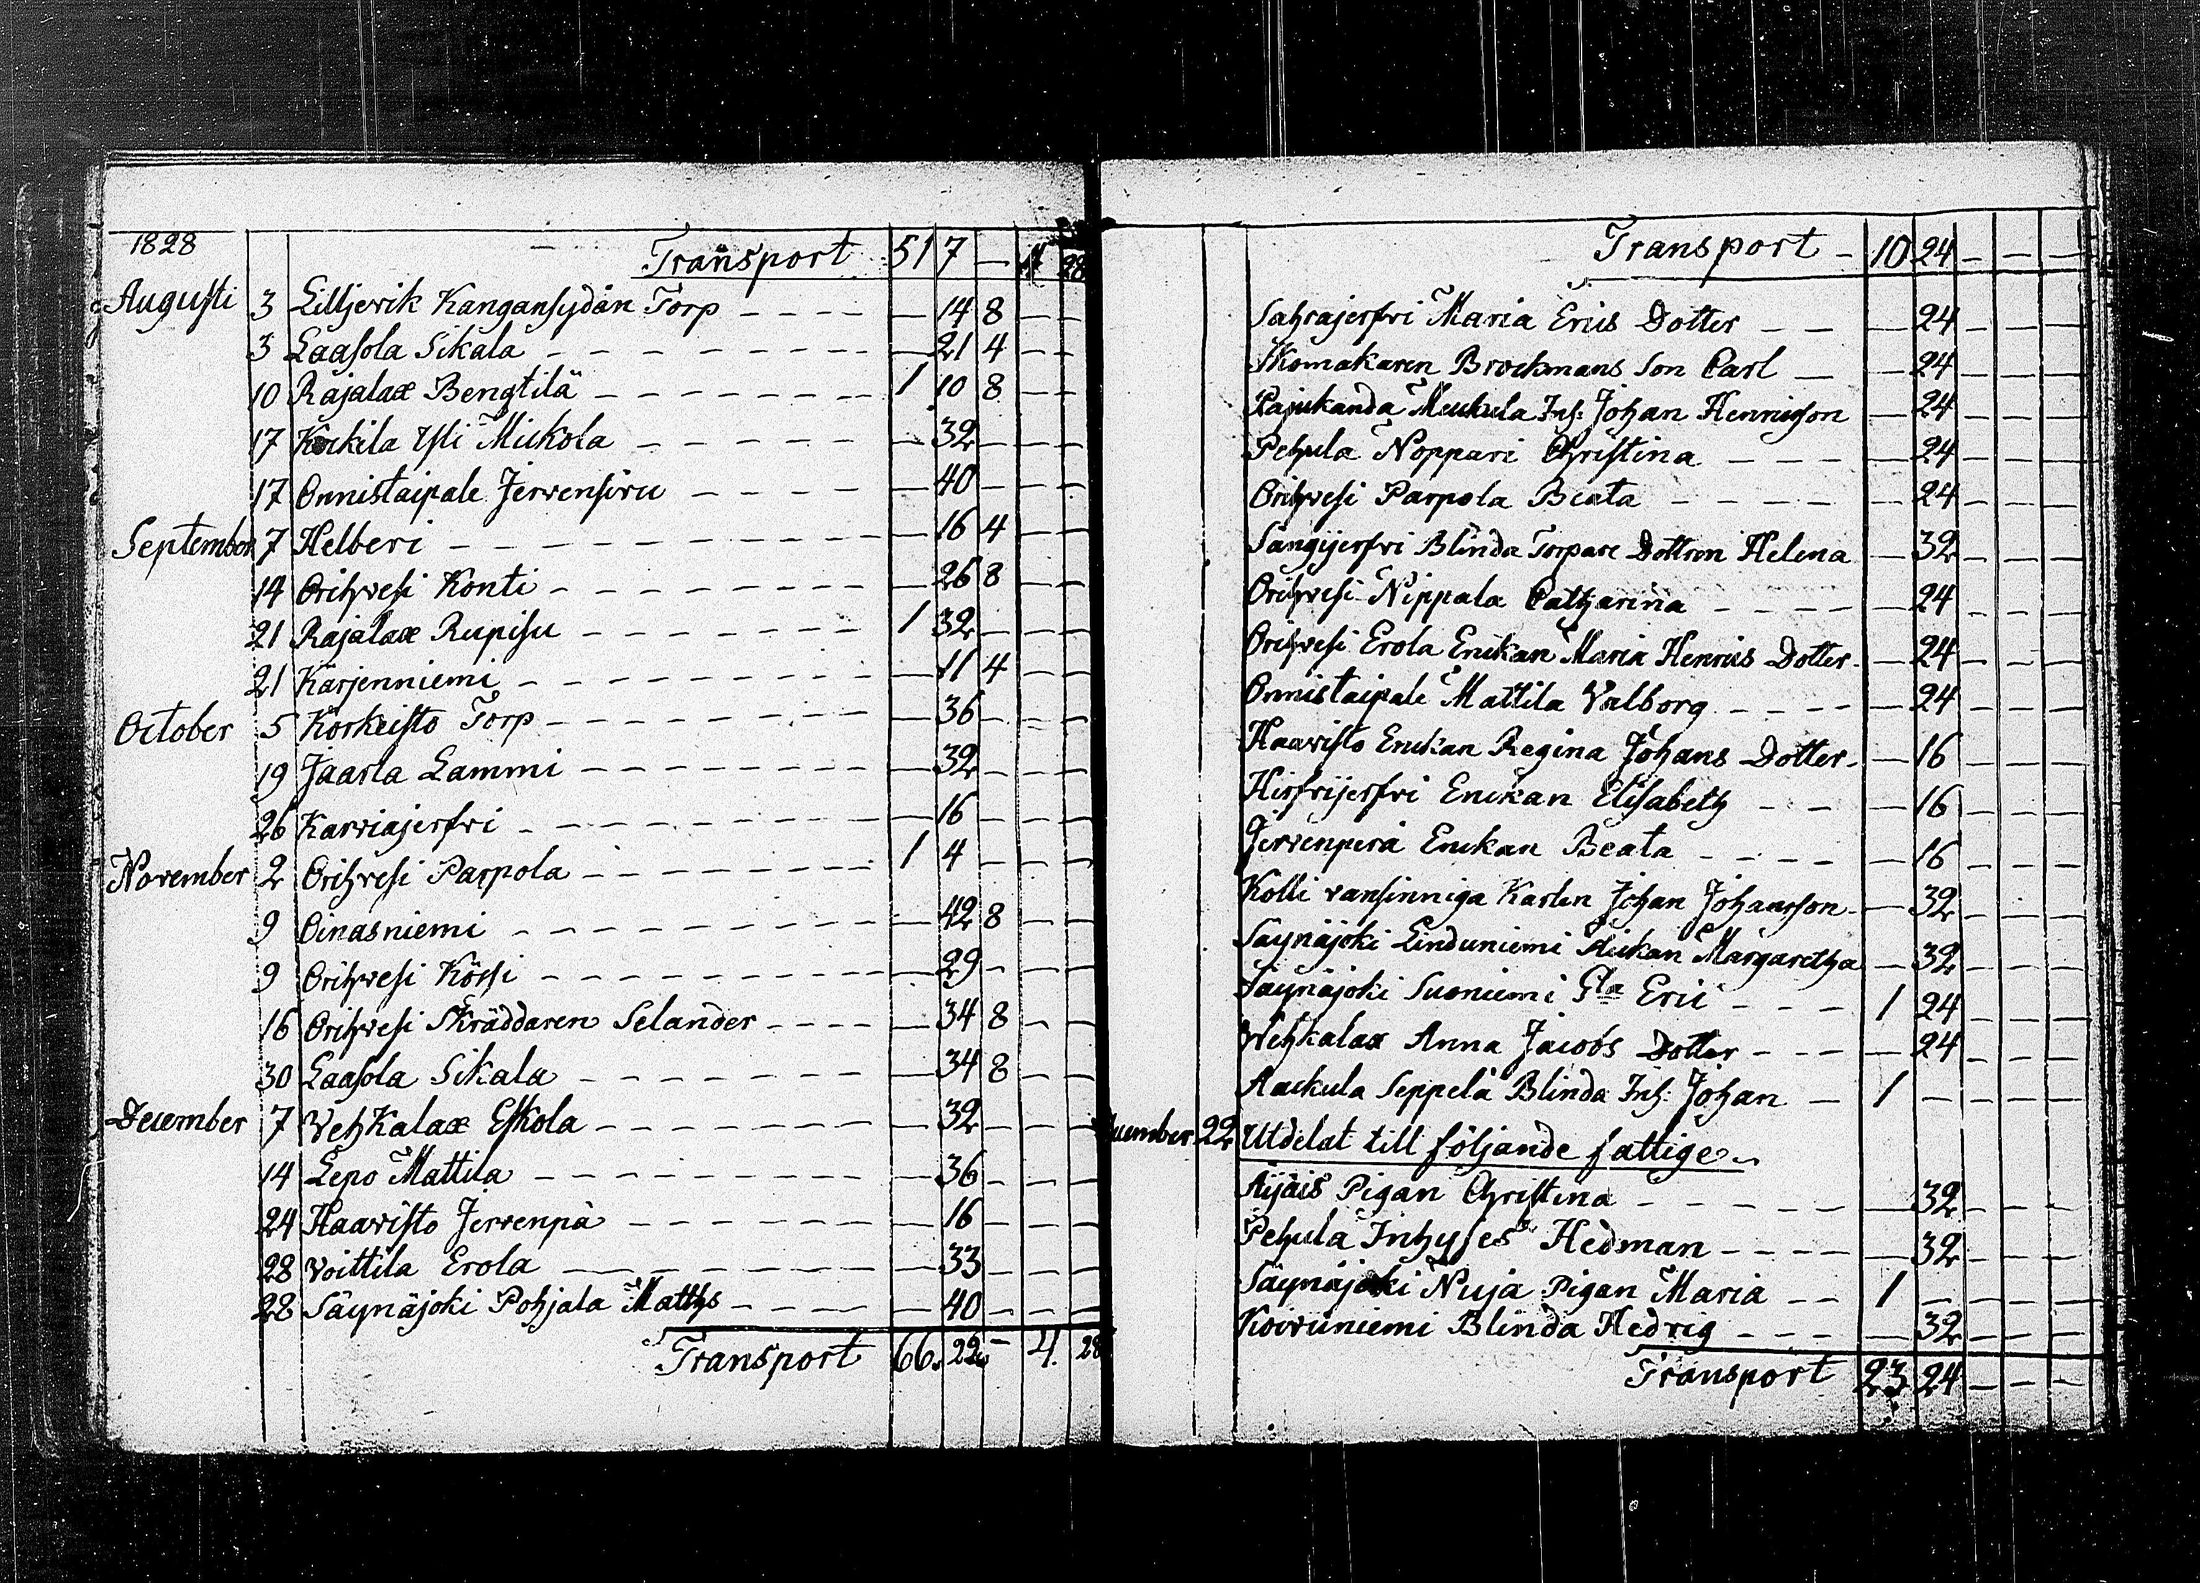 1828 Transport 51 7 — 4 28
Augusti 3 Lilljerik Kangansydän Torp — — — — — 14 8 — —
3 Laasola Sikala — — — — — 21 4 — —
10 Rajalax Bengtilä — — — — 1 10 8 — —
17 Kockila Yli Mickola — — — — — 32 — — —
17 Onnistaipale Jervensuu — — — — — 40 — — —
September 7 Helberi — — — — — 16 4 — —
14 Orihvesi Konti — — — — — 26 8 — —
21 Rajalax Rupisu — — — — 1 32 — — —
21 Karjenniemi — — — — — 11 4 — —
October 5 Korkeisto Torp — — — — — 36 — — —
19 Jaarla Lammi — — — — — 32 — — —
26 Karviajerfvi — — — — — 16 — — —
November 2 Orihvesi Parpola — — — — 1 4 — — —
9 Oinasniemi — — — — — 42 8 — —
9 Orihvesi Körsi — — — — — 29 — — —
16 Orihvesi Skräddaren Selander — — — — — 34 8 — —
30 Laasola Sikala — — — — — 34 8 — —
December 7 Vehkalax Eskola — — — — — 32 — — —
14 Lepo Mattila — — — — — 36 — — —
24 Haavisto Jervenpä — — — — — 16 — — —
28 Voittila Erola — — — — — 33 — — —
28 Säynäjoki Pohjala Matths — — — — — 40 — — —
Transport 66. 22. — 4. 28
Transport — 10 24 — — —
Sahrajerfvi Maria Erics Dotter — — — 24 — — —
Skomakaren Brockmans Son Carl — — 24 — — —
Pajukanda Meukula Inh: Johan Henricsson — 24 — — —
Pehula Noppari Christina — — — — 24 — — —
Orihvesi Parpola Beata — — — — — 24 — — —
Sangijerfvi Blinda Torpare Dottren Helena — 32 — — —
Orihvesi Nippala Catharina — — — — — 24 — — —
Orihvesi Erola Enckan Maria Henrics Dotter — — 24 — — —
Onnistaipale Mattila Valborg — — — — — 24 — — —
Haavisto Enckan Regina Johans Dotter — — 16 — — —
Hirfvijerfvi Enckan Elisabeth — — — 16 — — —
Jervenperä Enckan Beata — — — — — 16 — — —
Kolli vansinniga Karlen Johan Johansson — — 32 — — —
Säynäjoki Linduniemi Änckan Margaretha — 32 — — —
Säynäjoki Suoniemi Gla Eric — — — 1 24 — — —
Vehkalax Anna Jacobs Dotter — — — — 24 — — —
Rackula Seppelä Blinda Inh: Johan — 1 — — — —
December 22 Utdelat till följande fattige
Äijäis Pigan Christina — — — — 32 — — —
Pehula Inhyses Hedman — — — — — 32 — — —
Säynäjoki Nuja Pigan Maria — — 1 — — — —
Koivuniemi Blinda Hedvig — — — — 32 — — —
Transport 23 24 — — —